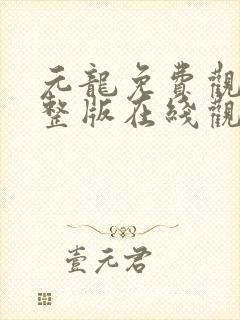 元龍免費觀
整版在綫觀
壹元君